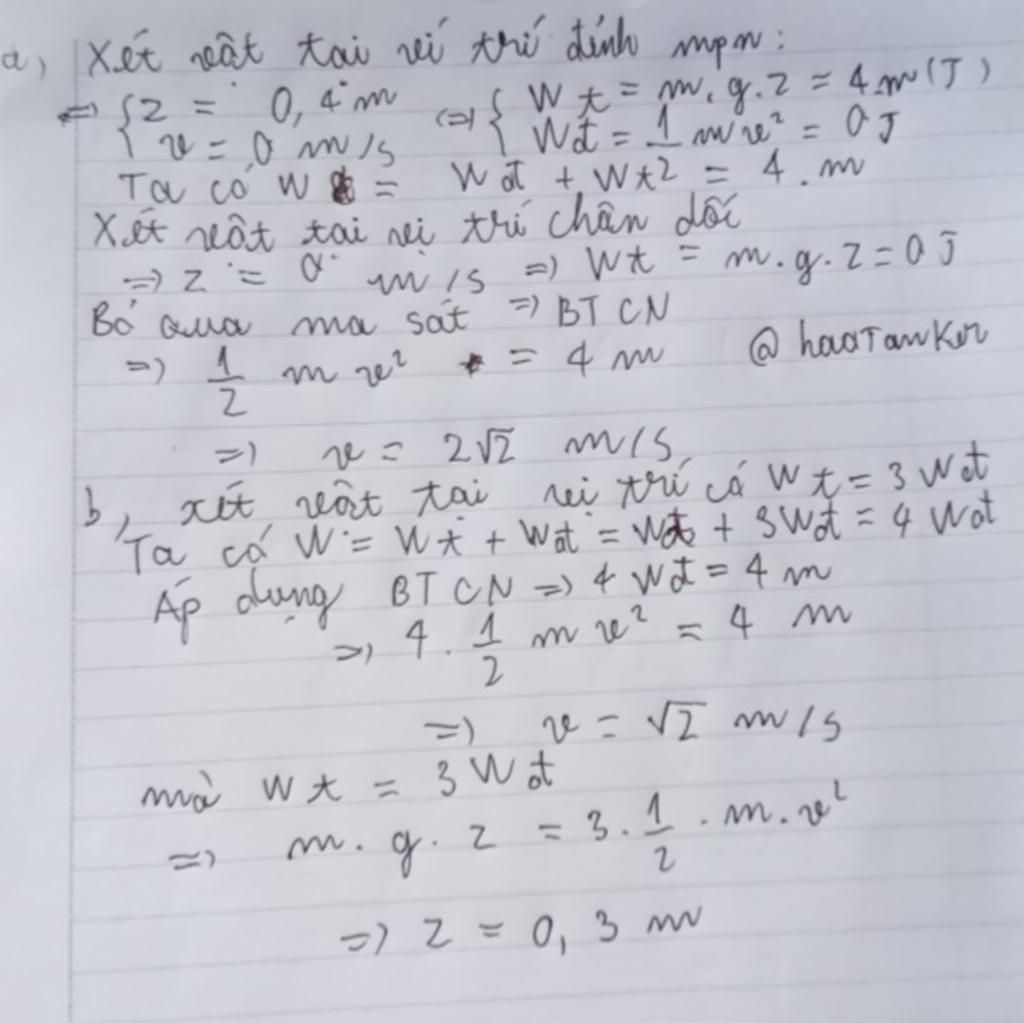 a, Xét vật tại vị trí đỉnh mpn:
=> { z = 0,4 m <=> { Wt = m.g.z = 4.m (J)
v = 0 m/s Wđ = 1/2 mv² = 0 J
Ta có W = Wđ + Wt2 = 4.m
Xét vật tại vị trí chân dốc
=> z = 0 m/s => Wt = m.g.z = 0 J
Bỏ qua ma sát => BTCN
=> 1/2 m v² = 4 m @haoTanKer
=> v = 2√2 m/s
b, xét vật tại vị trí có Wt = 3Wđ
Ta có W = Wt + Wđ = Wđ + 3Wđ = 4 Wđ
Áp dụng BTCN => 4 Wđ = 4 m
=> 4 . 1/2 m v² = 4 m
=> v = √2 m/s
mà Wt = 3 Wđ
=> m.g.z = 3.1/2.m.v²
=> z = 0,3 m